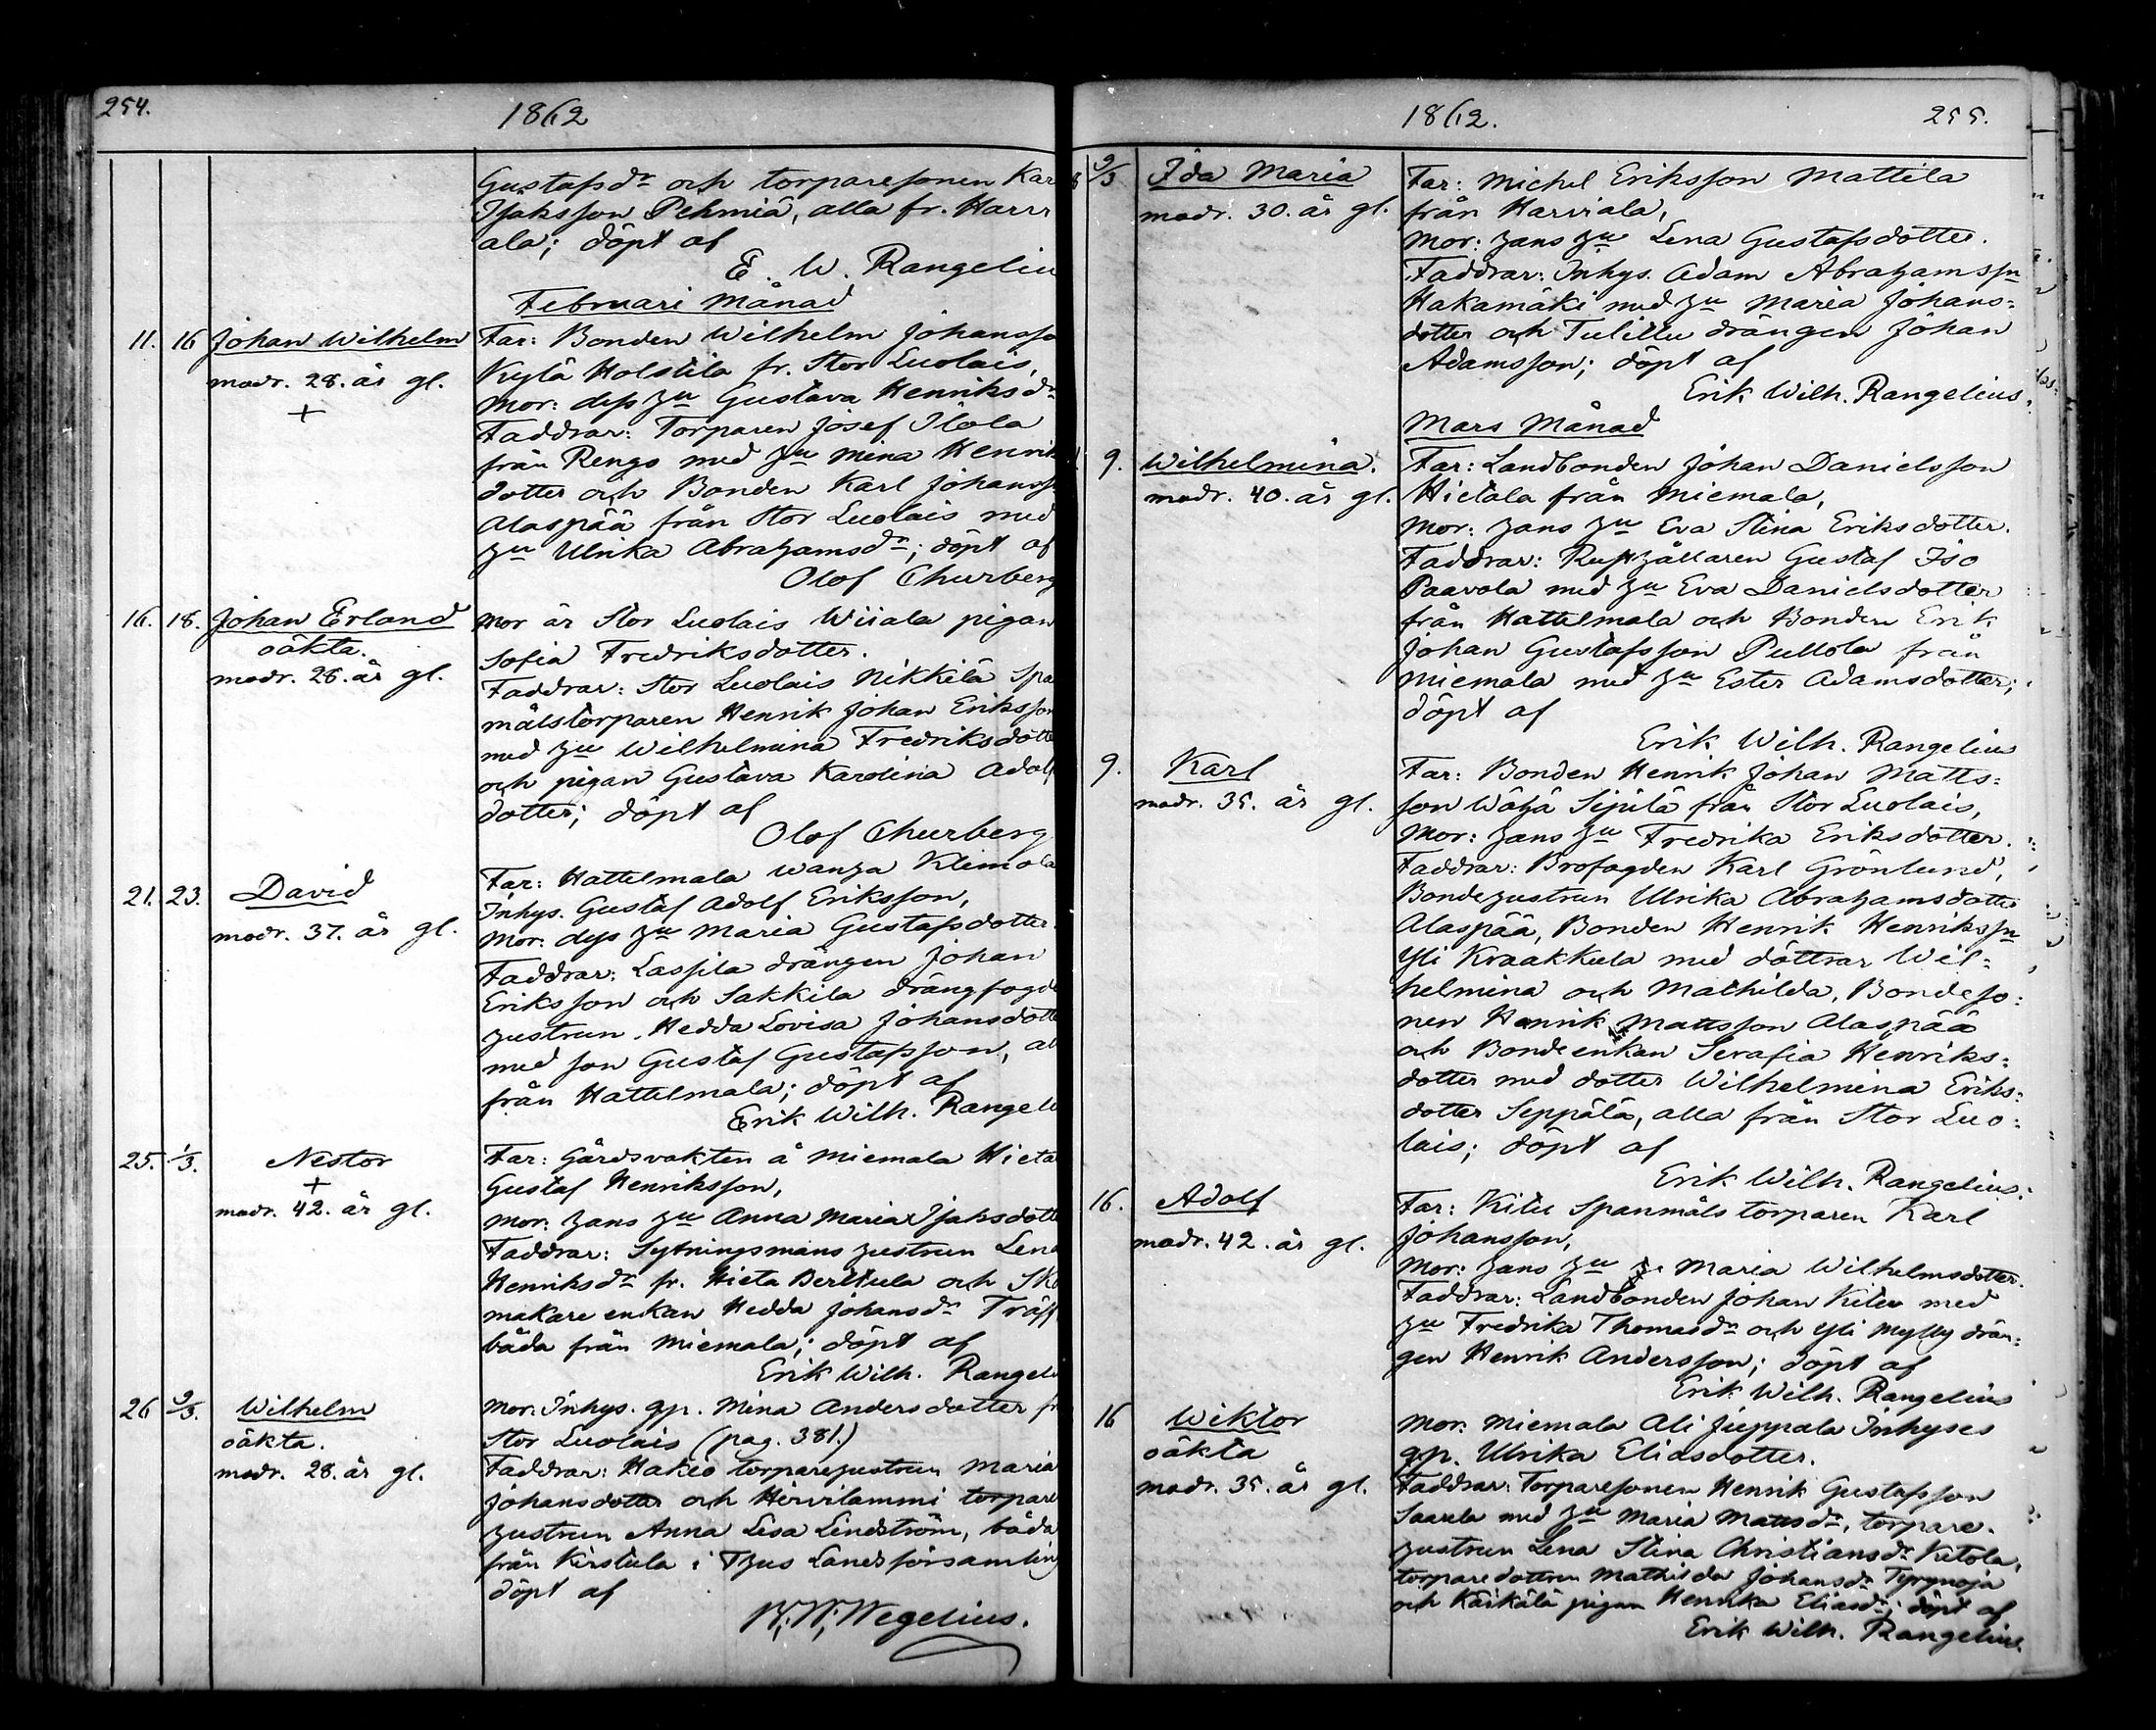 254.
1862
Gustafsdr och torparesonen Kar
Isaksson Pehmiä, alla fr. Harvi
ala; döpt af
E. W. Rangeliu
Februari Månad
11. 16 Johan Wilhelm
modr. 28. år gl.
+
Far: Bonden Wilhelm Johansso
Kylä Holstila fr. Stor Luolais,
Mor: dess hu Gustava Henriksdr
Faddrar: Torparen Josef Ilola
från Rengo med hu Mina Henrik
dotter och Bonden Karl Johansso
Alaspää från Stor Luolais med
hu Ulrika Abrahamsdr; döpt af
Olof Churberg
16. 18. Johan Erland
oäkta.
modr. 28. år gl.
Mor är Stor Luolais Wiiala pigan
Sofia Fredriksdotter.
Faddrar: Stor Luolais Nikkilä Spa
målstorparen Henrik Johan Eriksson
med hu Wilhelmina Fredriksdotte
och pigan Gustava Karolina Adolf
dotter; döpt af
Olof Churberg
21. 23. David
modr. 37. år gl.
Far: Hattelmala Wanha Klemola
Inhys. Gustaf Adolf Eriksson,
Mor: dess hu Maria Gustafsdotter.
Faddrar: Lassila drängen Johan
Eriksson och Sakkila drängfogde
hustrun Hedda Lovisa Johansdotte
med son Gustaf Gustafsson, al
från Hattelmala; döpt af
Erik Wilh. Rangeli
25. 1/3. Nestor
+
modr. 42. år gl.
Far: Gårdsvakten å Miemala Hieta
Gustaf Henriksson,
Mor: hans hu Anna Maria Isaksdotte
Faddrar: Sytningsmans hustrun Lena
Henriksdr fr. Hieta Berttula och Sko
makare enkan Hedda Johansdr Träff
båda från Miemala; döpt af
Erik Wilh. Rangeli
26 2/3. Wilhelm
oäkta.
modr. 28. år gl.
Mor: Inhys. qp. Mina Andersdotter fr
Stor Luolais (pag. 381.)
Faddrar: Hakeo torparehustrun Maria
Johansdotter och Hirvilammi torpare
hustrun Anna Lisa Lindström, båda
från Kirstula i Thus Landsförsamling
döpt af
W. Wegelius.
1862.
255.
2/3 Ida Maria
modr. 30. år gl.
Far: Michel Eriksson Mattila
från Harviala,
Mor: hans hu Lena Gustafsdotter.
Faddrar: Inhys. Adam Abrahamssn
Hakamäki med hu Maria Johans=
dotter och Tulillu drängen Johan
Adamsson; döpt af
Erik Wilh. Rangelius.
Mars Månad
9. Wilhelmina.
modr. 40. år gl.
Far: Landbonden Johan Danielsson
Hietala från Miemala,
Mor: hans hu Eva Stina Eriksdotter.
Faddrar: Rusthållaren Gustaf Iso
Paavola med hu Eva Danielsdotter
från Hattelmala och Bonden Erik
Johan Gustafsson Pullola från
Miemala med hu Ester Adamsdotter;
döpt af
Erik Wilh. Rangelius
9. Karl
modr. 35. år gl.
Far: Bonden Henrik Johan Matts=
son Wähä Sipilä från Stor Luolais,
Mor: hans hu Fredrika Eriksdotter.
Faddrar: Brofogden Karl Grönlund,
Bondehustrun Ulrika Abrahamsdotter
Alaspää, Bonden Henrik Henrikssn
Yli Kraakkula med döttrar Wil=
helmina och Mathilda, Bondeso=
nen Henrik Mattsson Alaspää
och Bondeenkan Serafia Henriks=
dotter med dotter Wilhelmina Eriks=
dotter Seppälä, alla från Stor Luo=
lais; döpt af
Erik Wilh. Rangelius.
16. Adolf
modr. 42. år gl.
Far: Kilu Spanmåls torparen Karl
Johansson,
Mor: hans hu Maria Wilhelmsdotter.
Faddrar: Landbonden Johan Kilu med
hu Fredrika Thomasdr och Yli Mylly drän=
gen Henrik Andersson; döpt af
Erik Wilh. Rangelius
16 Wiktor
oäkta
modr. 35. år gl.
Mor: Miemala Ali Juppala Inhyses
qp. Ulrika Eliasdotter.
Faddrar: Torparesonen Henrik Gustafsson
Saarela med hu Maria Mattsdr, torpare.
hustrun Lena Stina Christiansdr Ketola,
torparedottren Mathilda Johansdr Tyrynoja
och Käikälä pigan Henrika Eliasdr; döpt af
Erik Wilh. Rangelius.